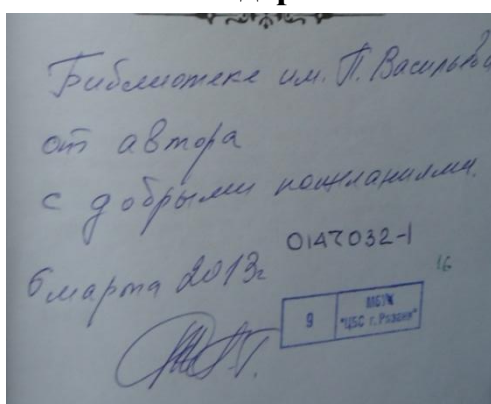 Библиотеке им. П. Васильева
от автора
с добрыми пожеланиями.
0147032-1
6 марта 2013г
16
9
МБУК
"ЦБС г. Рязани"